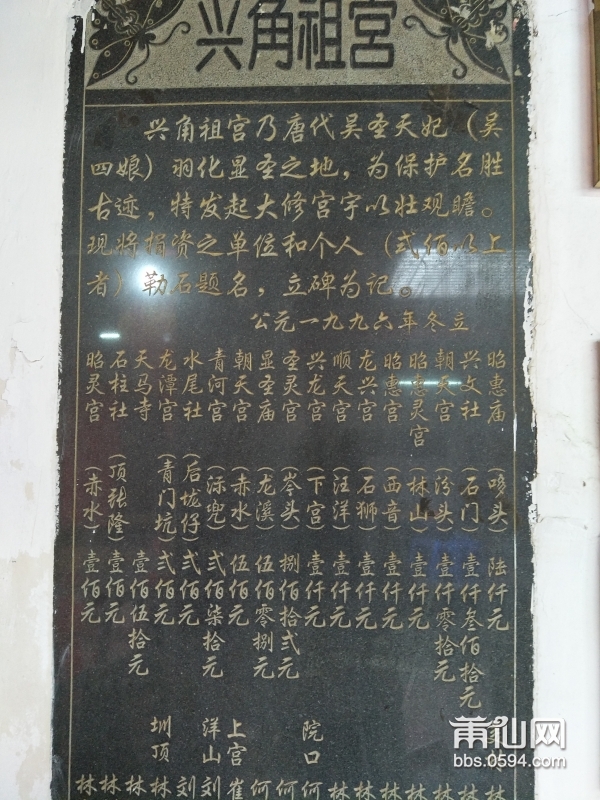 兴角祖宫
兴角祖宫乃唐代吴圣天妃（吴
四娘）羽化显圣之地，为保护名胜
古迹，特发起大修宫宇以壮观瞻。
现将捐资之单位和个人（贰佰以上
者）勒石题名，立碑为记。
公元一九九六年冬立
昭惠庙（唛头）陆仟元
兴文社（石门）壹仟叁佰拾元
朝天宫（汾头）壹仟零拾元
昭惠灵宫（林山）壹仟元
昭惠宫（西音）壹仟元
龙兴宫（石狮）壹仟元
顺天宫（汪洋）壹仟元
兴龙宫（下宫）壹仟元
圣灵宫（岑头）捌佰拾贰元
显圣庙（龙溪）伍佰零捌元
朝天宫（赤水）伍佰元
青河宫（溁兜）贰佰柒拾元
水尾社（后垅仔）贰佰元
龙潭宫（青门坑）贰佰元
天马寺 壹佰伍拾元
石柱社（顶张隆）壹佰元
昭灵宫（赤水）壹佰元
林
林
林
林
林
林
林
院口 何
何
何
上宫 崔
洋山 刘
刘
圳顶 林
林
林
林
莆仙网
bbs.0594.com